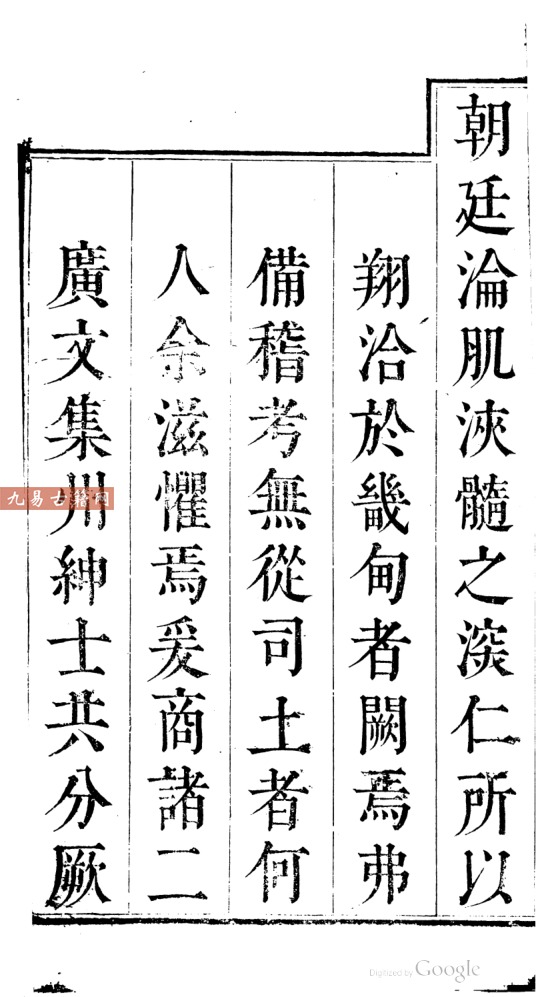 朝廷淪肌浹髓之深仁所以
翔洽於畿甸者闕焉弗
備稽考無從司土者何
人余滋懼焉爰商諸二
廣文集州紳士共分厥
九易古籍网
Digitized by Google